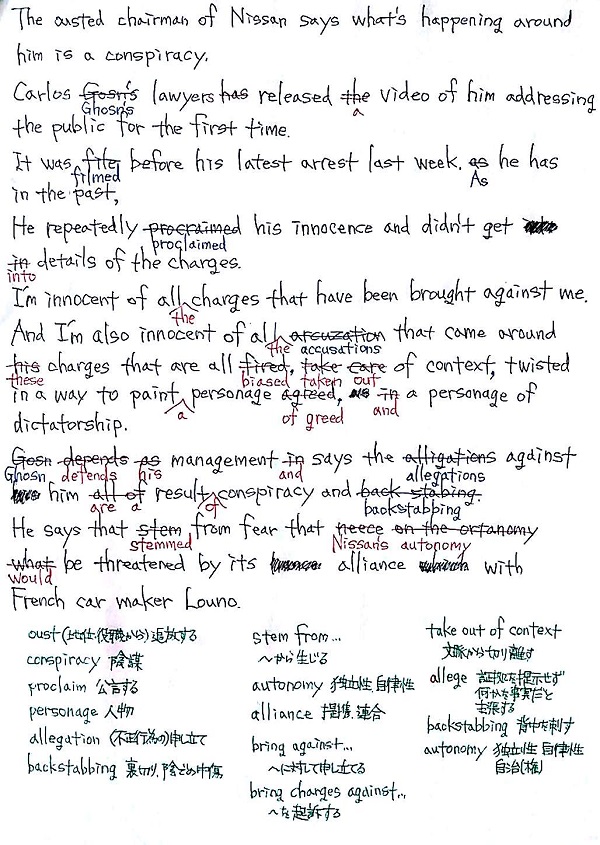 The ousted chairman of Nissan says what's happening around
him is a conspiracy.
Carlos Gosn's lawyers has released the video of him addressing
Ghosn's a
the public for the first time.
It was filed before his latest arrest last week. as he has
filmed As
in the past,
He repeatedly procraimed his innocence and didn't get
proclaimed
in details of the charges.
into
I'm innocent of all charges that have been brought against me.
the
And I'm also innocent of all arcuzation that came around
the accusations
his charges that are all fired, take care of context, twisted
these biased taken out
in a way to paint personage agreed, in a personage of
a of greed and
dictatorship.
Gosn depends as management in says the alligations against
Ghosn defends his and allegations
him all of result conspiracy and back stabing.
are a of backstabbing
He says that stem from fear that neece on the ortonomy
stemmed Nissan's autonomy
what be threatened by its alliance with
would
French car maker Louno.
oust (地位・役職から)追放する
conspiracy 陰謀
proclaim 公言する
personage 人物
allegation (不正行為の)申し立て
backstabbing 裏切り、陰での中傷
stem from...
〜から生じる
autonomy 独立性 自律性
alliance 提携、連合
bring against...
〜に対して申し立てる
bring charges against...
〜を起訴する
take out of context
文脈から切り離す
allege 証拠を提示せず
何かを事実だと
主張する
backstabbing 背中を刺す
autonomy 独立性 自律性
自治(権)